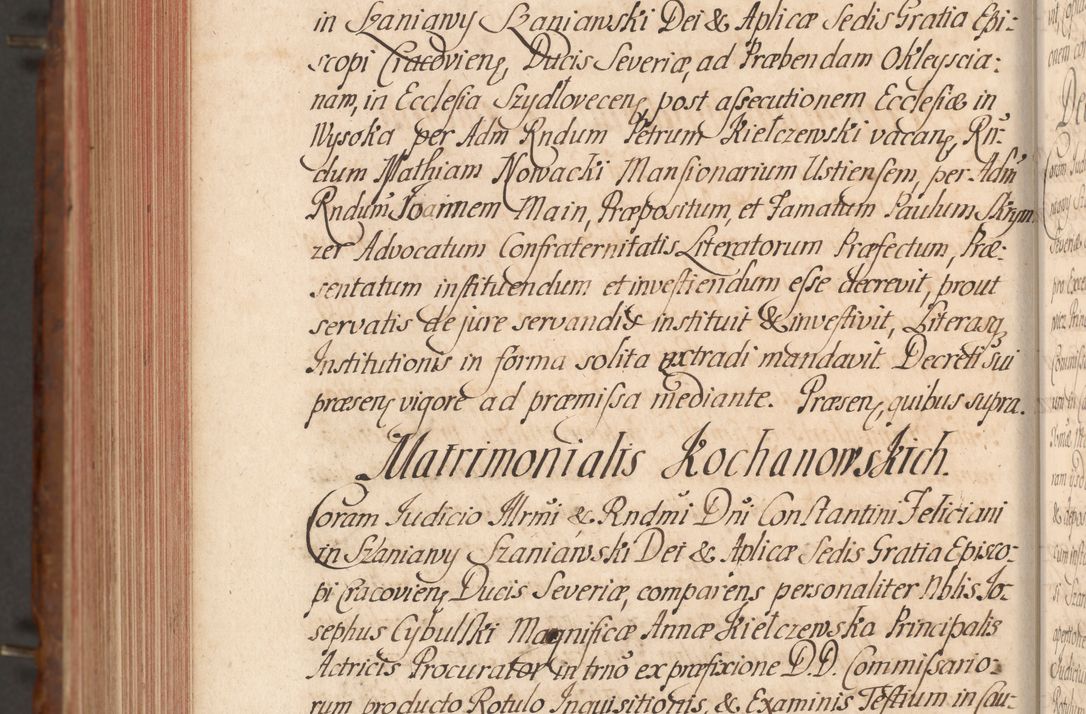 in Szaniawy Szaniawski Dei & Aplicæ Sedis Gratia Epi:
scopi Cracovieng, Ducis Severiæ, ad Præbendam Okleyscia:
nam, in Ecclesia Szydłoveceng, post assecutionem Ecclesiæ in
Wysoka per Adm Rndum Petrum Kiełczewski vacang, Rn:
dum Mathiam Nowacki Mansionarium Ustiensem, per Adm
Rndum Joannem Main, Præpositum, et Famatum Paulum
zer Advocatum Confraternitatis Literatorum Præfectum, Præ:
sentatum instituendum et investiendum esse decrevit, prout
servatis de jure servandis instituit & investivit, Literasq
Institutionis in forma solita extradi mandavit. Decreti sui
præseng vigore ad præmissa mediante. Præseng, quibus supra.
Matrimonialis Kochanowskich.
Coram Judicio Illrmi & Rndmi Dni Constantini Feliciani
in Szaniawy Szaniawski Dei & Aplicæ Sedis Gratia Episco:
pi Cracovieng Ducis Severiæ, comparens personaliter Nblis Jo:
sephus Cybulski Magnificæ Annæ Kiełczewska Principalis
Actricis Procurator in trno ex præfixione D.D. Commissario:
rum producto Rotulo Inquisitionis, & Examinis Testium in cau: